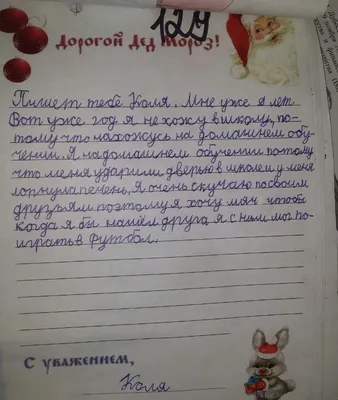 129
Дорогой Дед Мороз!
Пишет тебе Коля. Мне уже 8 лет
Вот уже год я не хожу в школу, по-
тому что нахожусь на домашнем обу-
чении. Я на домашнем обучении потому
что меня ударили дверью в школе и у меня
лопнула печень. Я очень скучаю по своим
друзьям поэтому я хочу мяч чтоб
когда я бы нашёл друга, я с ним мог по-
играть в футбол.
С уважением,
Коля